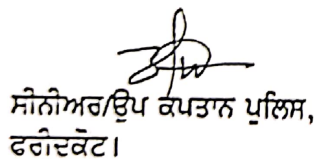 ਸੀਨੀਅਰ/ਉਪ ਕਪਤਾਨ ਪੁਲਿਸ,
ਫਰੀਦਕੋਟ।